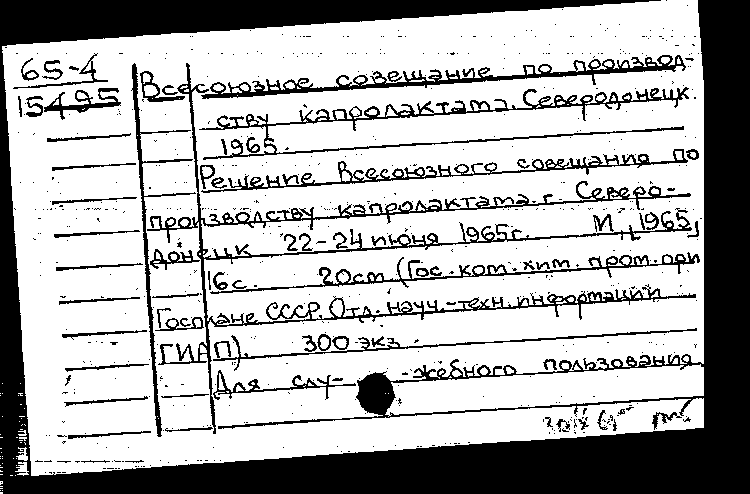 65-4
15495
Всесоюзное совещание по производ-
ству капролактама. Северодонецк.
1965.
Решение Всесоюзного совещания по
производству капролактама. г. Северо-
донецк 22-24 июня 1965г. М., 1965,
16с. 20см (Гос. ком. хим. пром. при
Госплане СССР. Отд. науч.-техн. информации
ГИАП). 300 экз.
Для слу- -жебного пользования